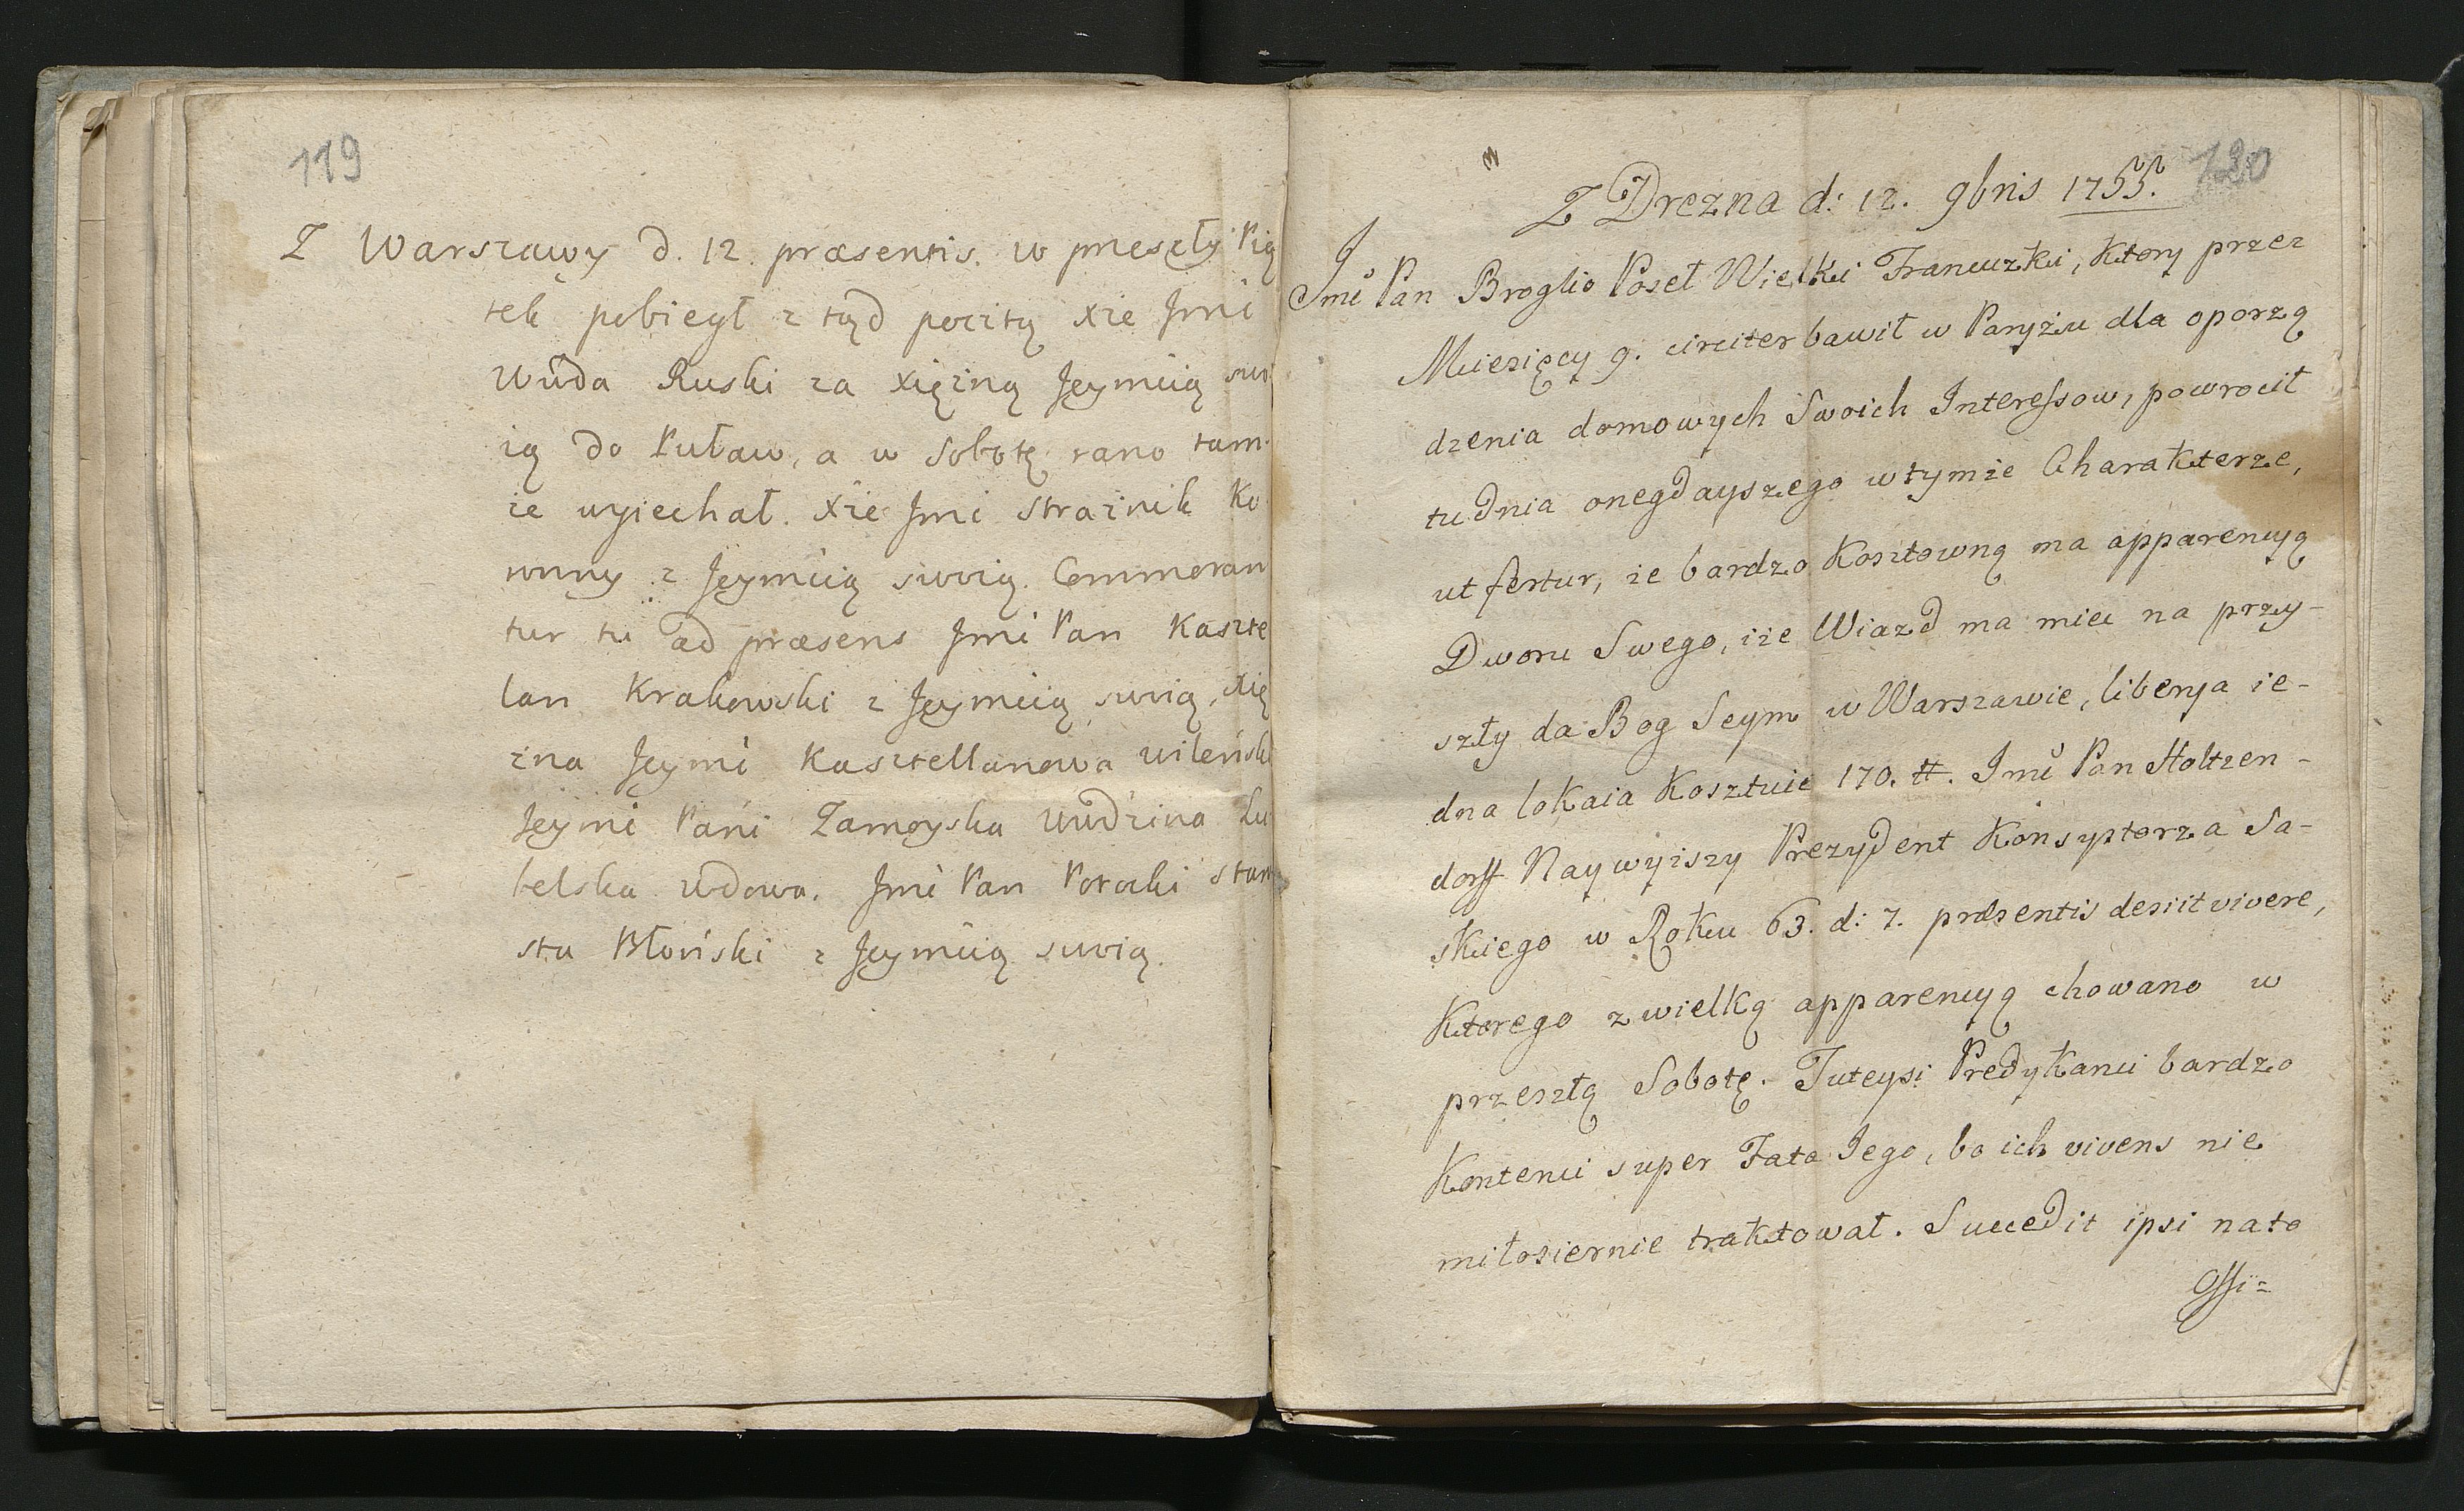 119
Z Warszawy d. 12. præsentis. w przeszły Pią
tek pobiegł z tąd pocztą Xże Jmć
Wda Ruski za Xiężną Jeymcią swo
ią do Puław, a w Sobotę rano tam
że wyiechał. Xże Jmć Strażnik Ko
ronny z Jeymcią swoią. Commoran
tur tu ad præsens Jmć Pan Kaszte
lan Krakowski z Jeymcią swoią, Xię
żna Jeymć Kasztellanowa wileńsk
Jeymć Pani Zamoyska Wdzina Lu
belska wdowa. Jmć Pan Potocki Staro
sta Błoński z Jeymcią swoią.
120
Z Drezna d: 12. 9bris 1755.
Jmć Pan Broglio Poseł Wielki Francuzki, ktory przez
Miesięcy 9. circiter bawił w Paryżu dla oporzą
dzenia domowych Swoich Interessow, powrocił
tu dnia onegdayszego w tymże Charakterze,
ut fertur, że bardzo kosztowną ma apparencyą
Dworu Swego, iże Wiazd ma miec na przy-
szły da Bog Seym w Warszawie, liberya ie-
dna lokaia kosztuie 170. #. Jmć Pan Holtzen-
dorff Naywyższy Prezydent Konsystorza Sa-
skiego w Roku 63. d: 7. præsentis desiit vivere,
ktorego z wielką apparencyą chowano w
przeszłą Sobotę. Tuteysi Predykanci bardzo
kontenci super Fata Jego, bo ich vivens nie
miłosiernie traktował. Succedit ipsi na to
Offi=